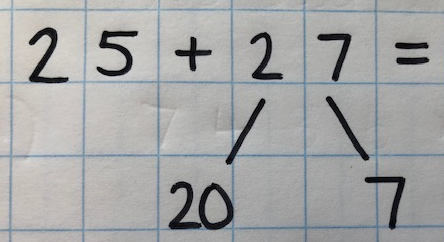 25 + 27 =
20 7